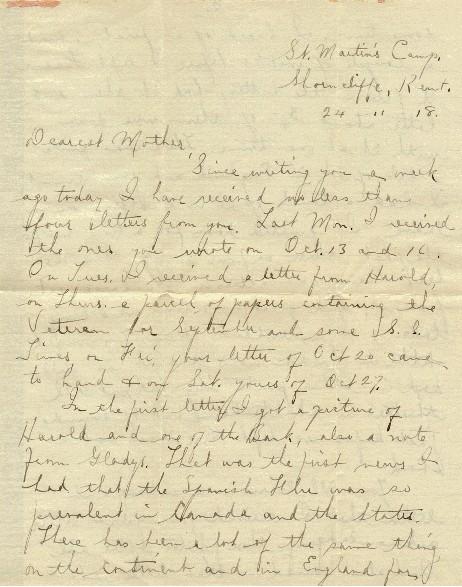 St. Martin's Camp,
Shorncliffe, Kent.
24 " 18.
Dearest Mother
Since writing you a week
ago today I have received no less than
four letters from you. Last Mon. I received
the ones you wrote on Oct. 13 and 16.
On Tues. I received a letter from Harold,
on Thurs. a parcel of papers containing the
Veteran for September and some S. S.
Times, on Fri. your letter of Oct 20 came
to hand & on Sat. yours of Oct 27.
In the first letter I got a picture of
Harold and one of the Bank, also a note
from Gladys. That was the first news I
had that the Spanish Flu was so
prevalent in Canada and the States.
There has been a lot of the same thing
on the continent and in England for